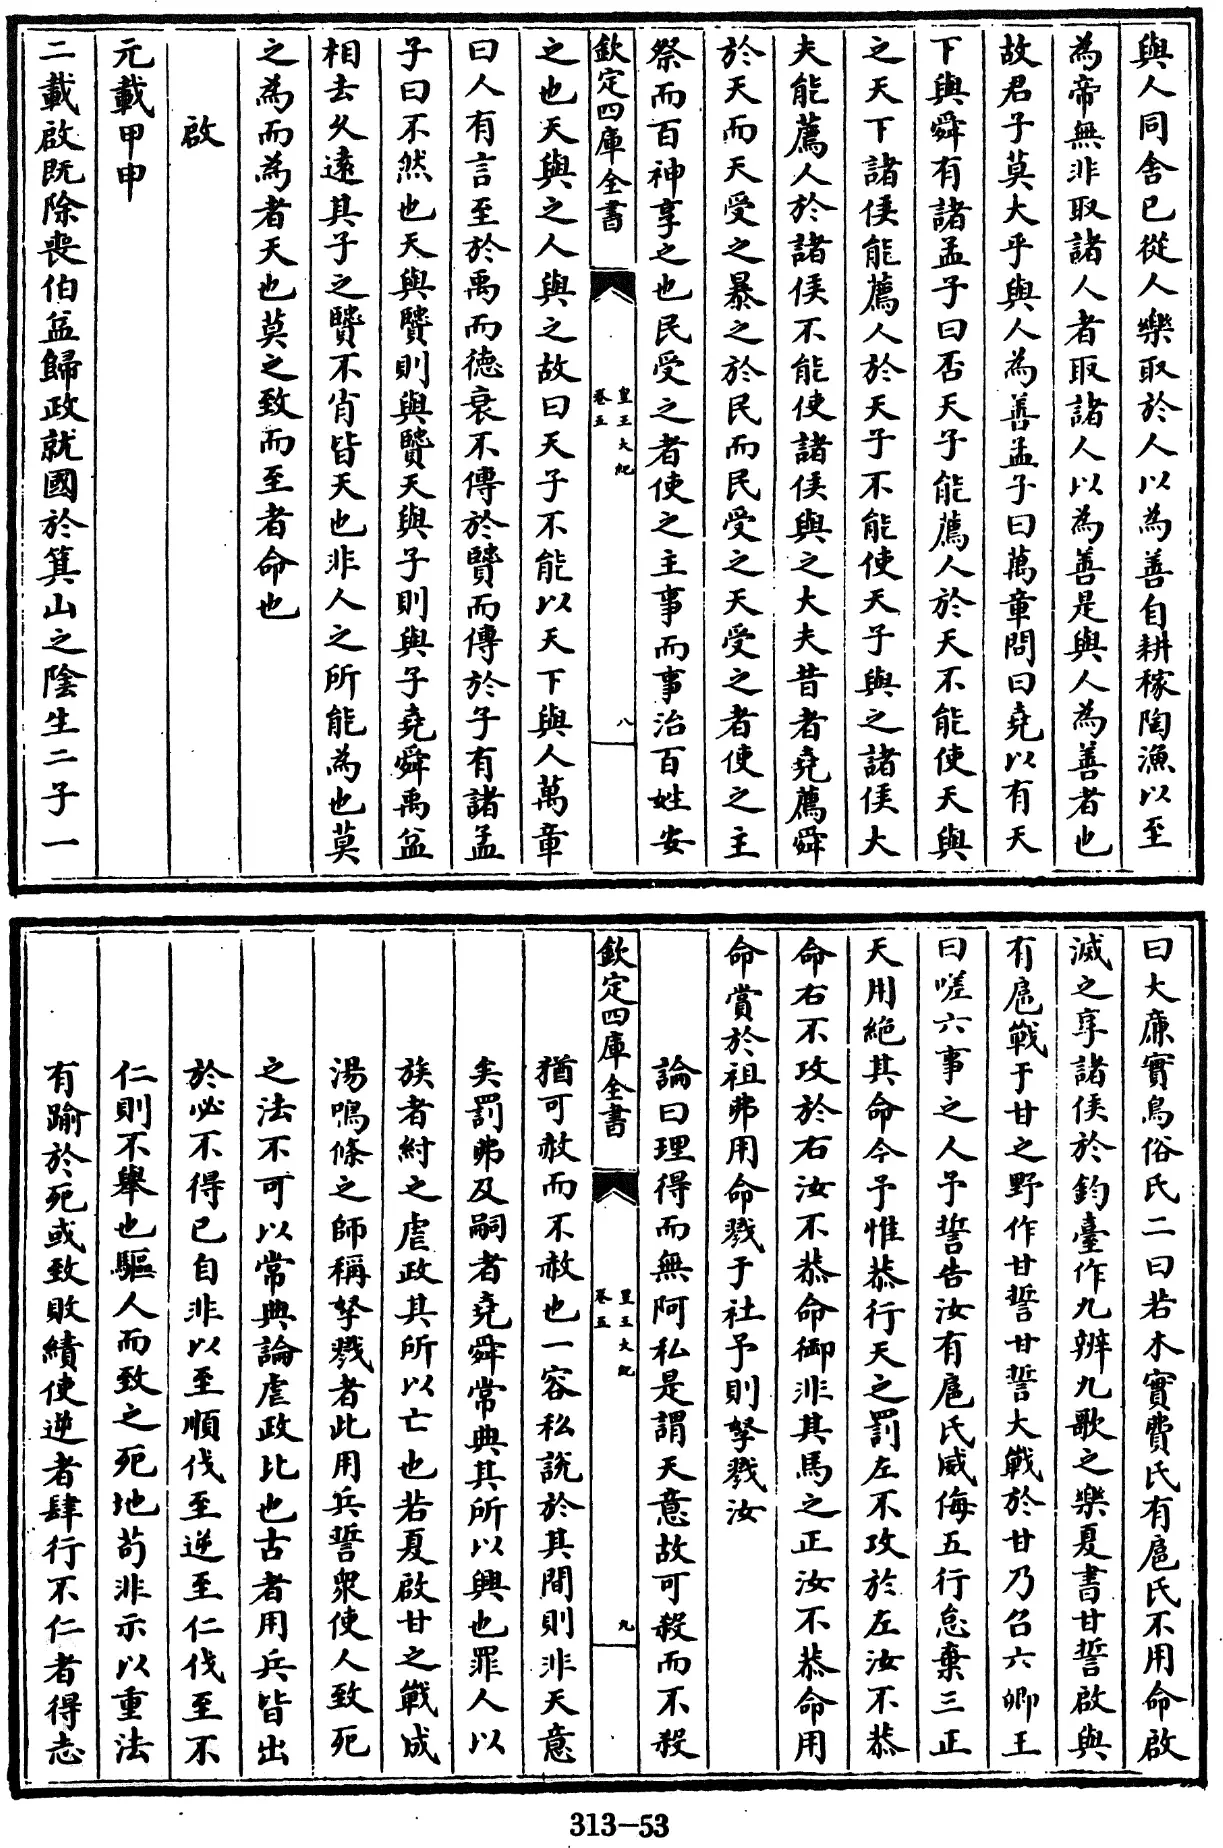 與人同舍已從人樂取於人以為善自耕稼陶漁以至
為帝無非取諸人者取諸人以為善是與人為善者也
故君子莫大乎與人為善孟子曰萬章問曰堯以有天
下與舜有諸孟子曰否天子能薦人於天不能使天與
之天下諸侯能薦人於天子不能使天子與之諸侯大
夫能薦人於諸侯不能使諸侯與之大夫昔者堯薦舜
於天而天受之暴之於民而民受之天受之者使之主
祭而百神享之也民受之者使之主事而事治百姓安
欽定四庫全書
皇王大紀
卷五
八
之也天與之人與之故曰天子不能以天下與人萬章
曰人有言至於禹而德衰不傳於賢而傳於子有諸孟
子曰不然也天與賢則與賢天與子則與子堯舜禹益
相去久遠其子之賢不肖皆天也非人之所能為也莫
之為而為者天也莫之致而至者命也
啟
元載甲申
二載啟既除喪伯益歸政就國於箕山之陰生二子一
曰大廉實鳥俗氏二曰若木實費氏有扈氏不用命啟
滅之享諸侯於鈞臺作九辨九歌之樂夏書甘誓啟與
有扈戰于甘之野作甘誓甘誓大戰於甘乃召六卿王
曰嗟六事之人予誓告汝有扈氏威侮五行怠棄三正
天用絕其命今予惟恭行天之罰左不攻於左汝不恭
命右不攻於右汝不恭命御非其馬之正汝不恭命用
命賞於祖弗用命戮于社予則孥戮汝
論曰理得而無阿私是謂天意故可殺而不殺
欽定四庫全書
皇王大紀
卷五
九
猶可赦而不赦也一容私說於其間則非天意
矣罰弗及嗣者堯舜常典其所以興也罪人以
族者紂之虐政其所以亡也若夏啟甘之戰成
湯鳴條之師稱孥戮者此用兵誓衆使人致死
之法不可以常典論虐政比也古者用兵皆出
於必不得已自非以至順伐至逆至仁伐至不
仁則不舉也驅人而致之死地苟非示以重法
有踰於死或致敗績使逆者肆行不仁者得志
313-53